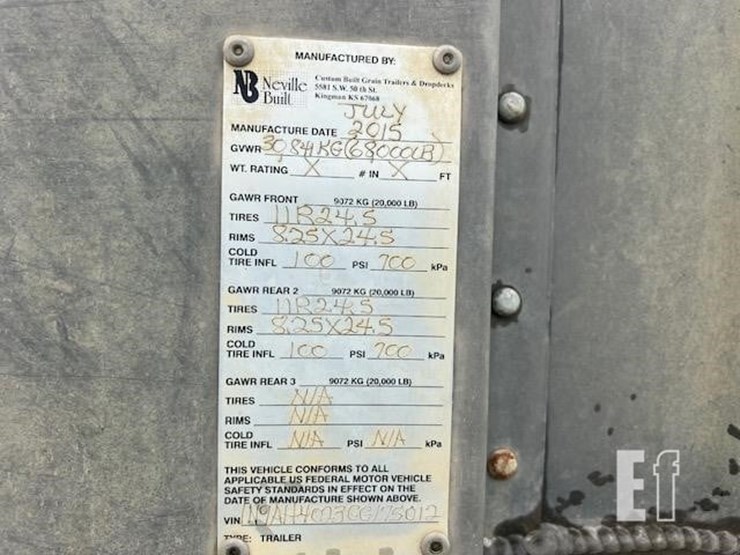 MANUFACTURED BY:
NB Neville Built
Custom Built Grain Trailers & Dropdecks
5581 S.W. 50 th St.
Kingman KS 67068
JULY
MANUFACTURE DATE 2015
GVWR 30,84 KG (68000LB)
WT. RATING X # IN X FT
GAWR FRONT 9072 KG (20,000 LB)
TIRES 11R24.5
RIMS 8.25X24.5
COLD
TIRE INFL 100 PSI 700 kPa
GAWR REAR 2 9072 KG (20,000 LB)
TIRES 11R24.5
RIMS 8.25X24.5
COLD
TIRE INFL 100 PSI 700 kPa
GAWR REAR 3 9072 KG (20,000 LB)
TIRES N/A
RIMS N/A
COLD
TIRE INFL N/A PSI N/A kPa
THIS VEHICLE CONFORMS TO ALL
APPLICABLE US FEDERAL MOTOR VEHICLE
SAFETY STANDARDS IN EFFECT ON THE
DATE OF MANUFACTURE SHOWN ABOVE.
VIN
TYPE: TRAILER
Ef